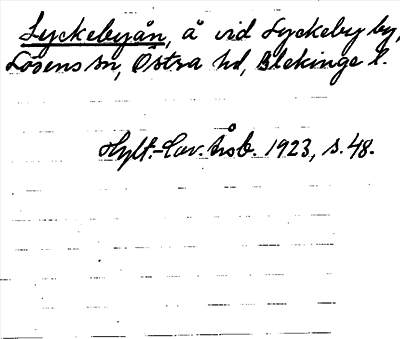 Lyckebyån, å vid Lyckeby by,
Lösens sn, Östra hd, Blekinge l.
Hylt.-Cav. årsb. 1923, s. 48.